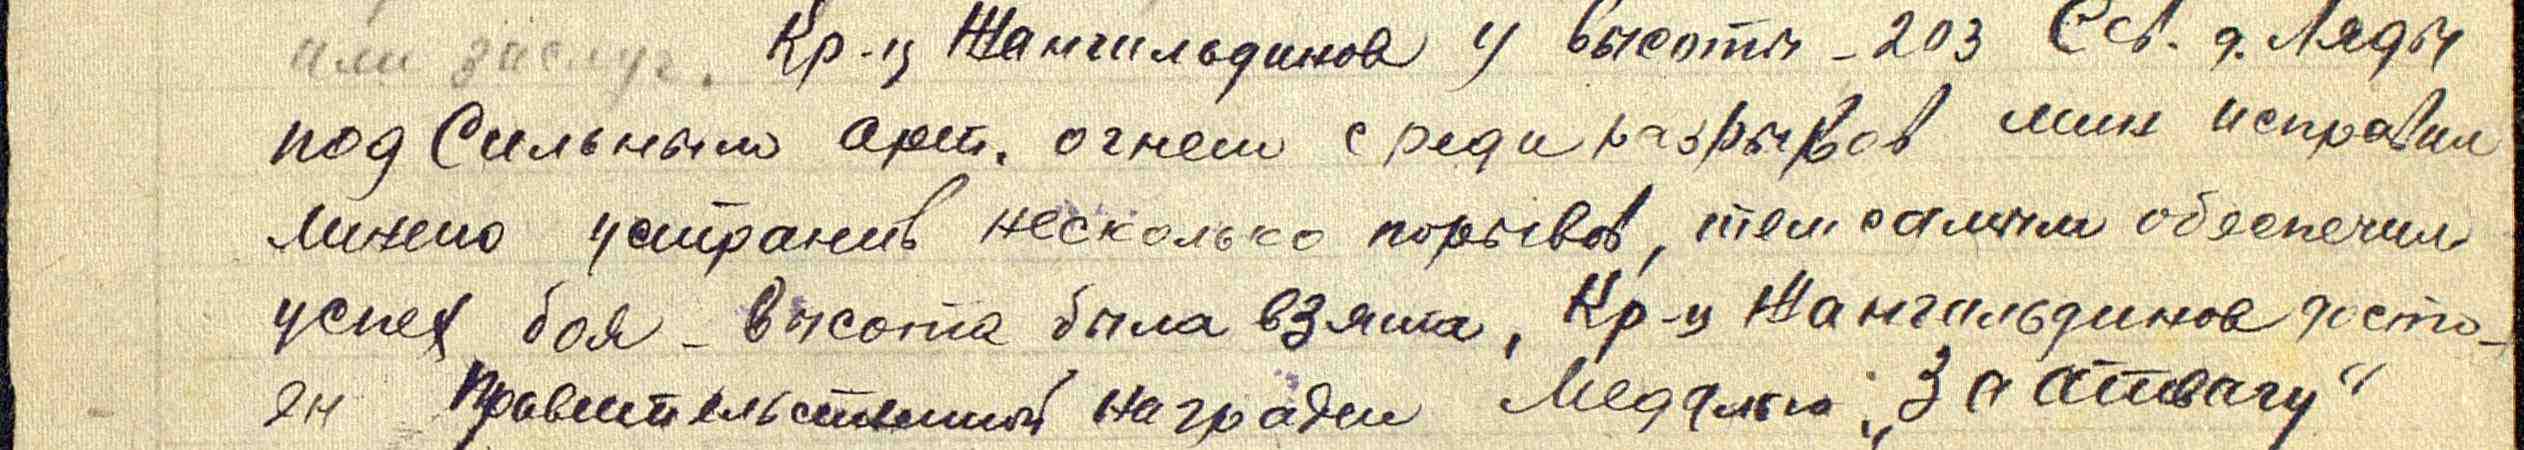 или заслуг. Кр-ц Жангильдинов у высоты - 203 Сев. д. Ляды
под Сильным арт. огнем среди разрывов мин исправил
линию устранив несколько порывов, тем самым обеспечил
успех боя - высота была взята, Кр-ц Жангильдинов досто-
ен Правительственной награды Медалью „За Отвагу“